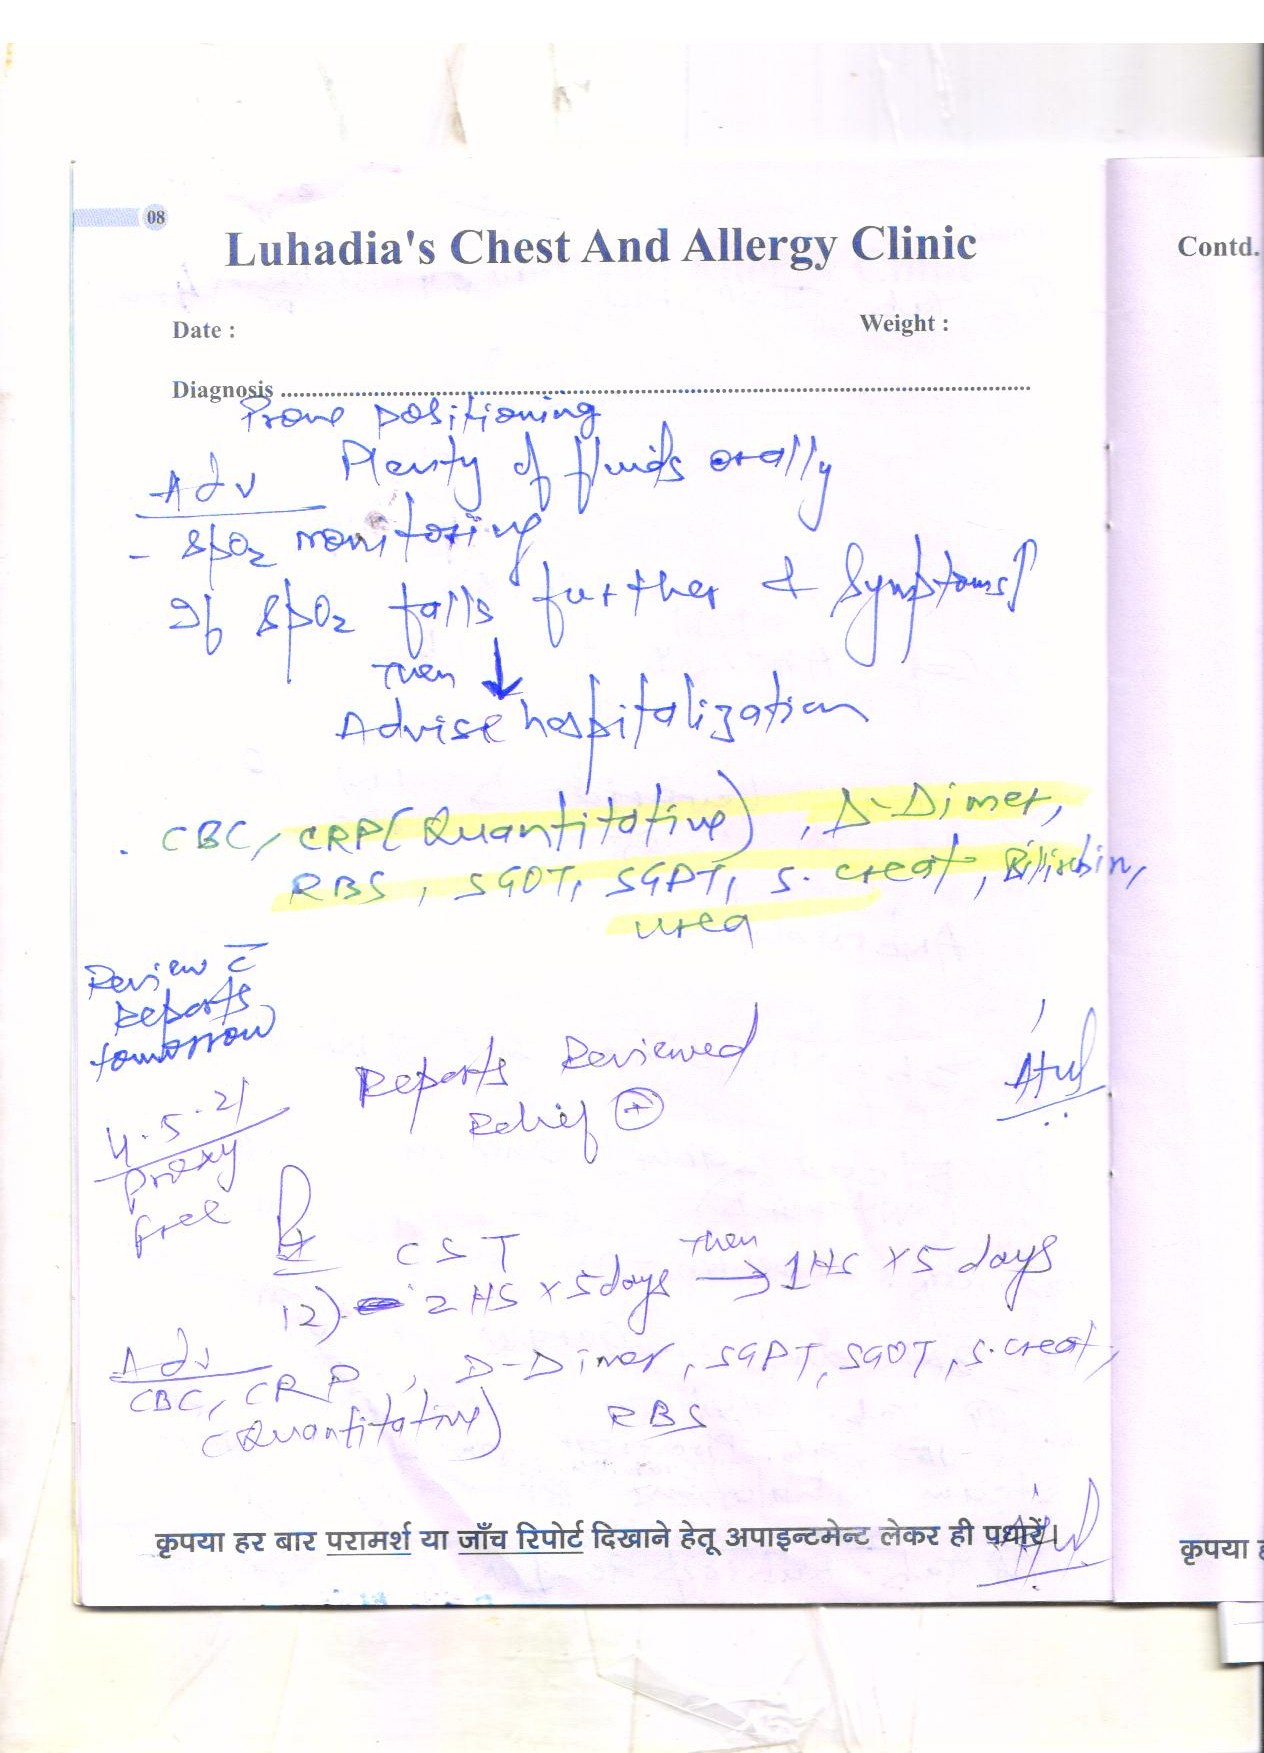 08
Luhadia's Chest And Allergy Clinic
Contd.
Date :
Weight :
Diagnosis ........................................................................
Prone positioning
Adv Plenty of fluids orally
- SpO2 monitoring
If SpO2 falls further & Symptoms↑
Then ↓
Advise hospitalization
. CBC, CRP (Quantitative), D-Dimer,
RBS, SGOT, SGPT, S. creat, Bilirubin,
urea
Review c̄
reports
tomorrow
Reports Reviewed
Relief ⊕
Atul
4.5.21
Proxy
free
Rx
CST
12) 2 HS x 5 days Then → 1 HS x 5 days
Adv
CBC, CRP, D-Dimer, SGPT, SGOT, S. creat,
(Quantitative) RBS
कृपया हर बार परामर्श या जाँच रिपोर्ट दिखाने हेतू अपाइन्टमेन्ट लेकर ही पधारें।
Atul
कृपया ह